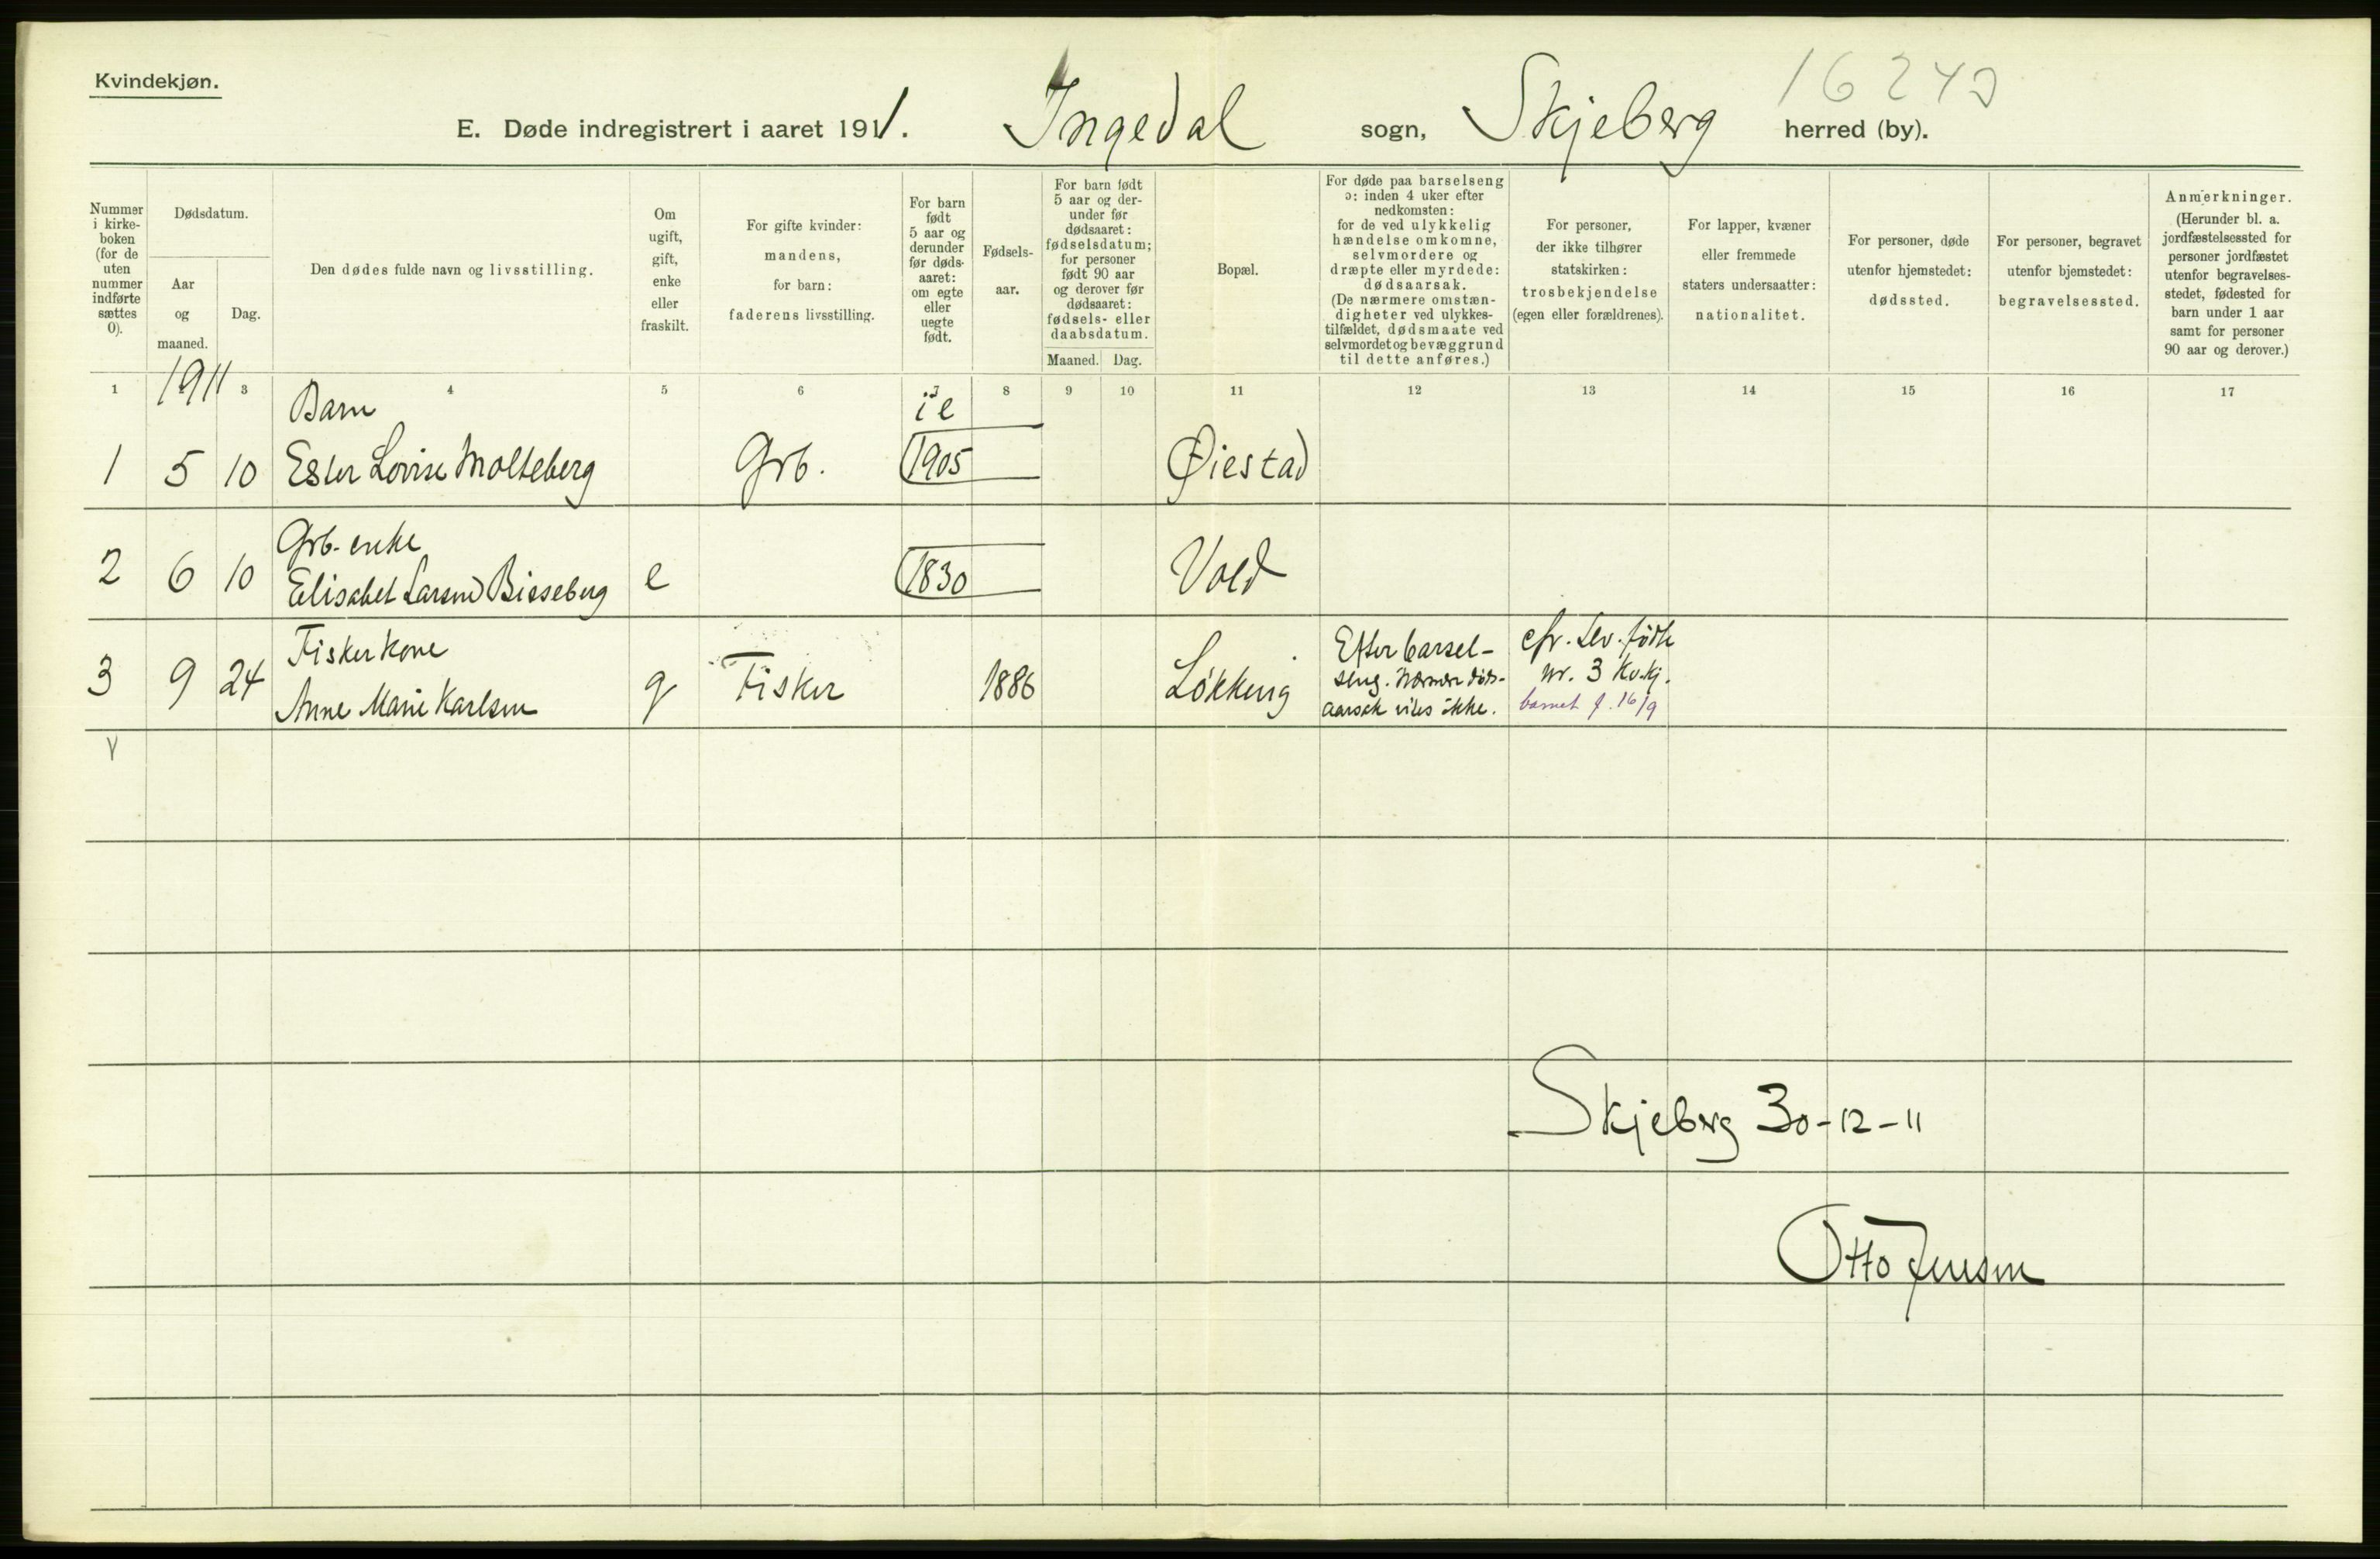 Kvindekjøn.
16243
E. Døde indregistrert i aaret 1911. Ingedal sogn, Skjeberg herred (by).
Nummer i kirke- boken (for de uten nummer indførte sættes 0).
Dødsdatum.
Aar og maaned.
Dag.
Den dødes fulde navn og livsstilling.
Om ugift, gift, enke eller fraskilt.
For gifte kvinder: mandens, for barn: faderens livsstilling.
For barn født 5 aar og derunder før døds- aaret: om egte eller uegte født.
Fødsels- aar.
For barn født 5 aar og der- under før dødsaaret: fødselsdatum; for personer født 90 aar og derover før dødsaaret: fødsels- eller daabsdatum.
Maaned. Dag.
Bopæl.
For døde paa barselseng ɔ: inden 4 uker efter nedkomsten: for de ved ulykkelig hændelse omkomne, selvmordere og dræpte eller myrdede: dødsaarsak. (De nærmere omstæn- digheter ved ulykkes- tilfældet, dødsmaate ved selvmordet og bevæggrund til dette anføres.)
For personer, der ikke tilhører statskirken: trosbekjendelse (egen eller forældrenes).
For lapper, kvæner eller fremmede staters undersaatter: nationalitet.
For personer, døde utenfor hjemstedet: dødssted.
For personer, begravet utenfor hjemstedet: begravelsessted.
Anmerkninger. (Herunder bl. a. jordfæstelsessted for personer jordfæstet utenfor begravelses- stedet, fødested for barn under 1 aar samt for personer 90 aar og derover.)
1 1911 3 4 5 6 7 8 9 10 11 12 13 14 15 16 17
Barn ie
1 5 10 Ester Lovise Molteberg Grb. 1905 Øiestad
Grb. enke
2 6 10 Elisabet Larsen Bisseberg e 1830 Vold
Fiskerkone Efter barsel- cfr. Lev. fødte
3 9 24 Anne Marie Karlsen g Fisker 1886 Løkkevig seng. Nærmere døds- nr. 3 Kv.kj.
aarsak vites ikke. barnet f. 16/9
Skjeberg 30-12-11
Otto Jensen